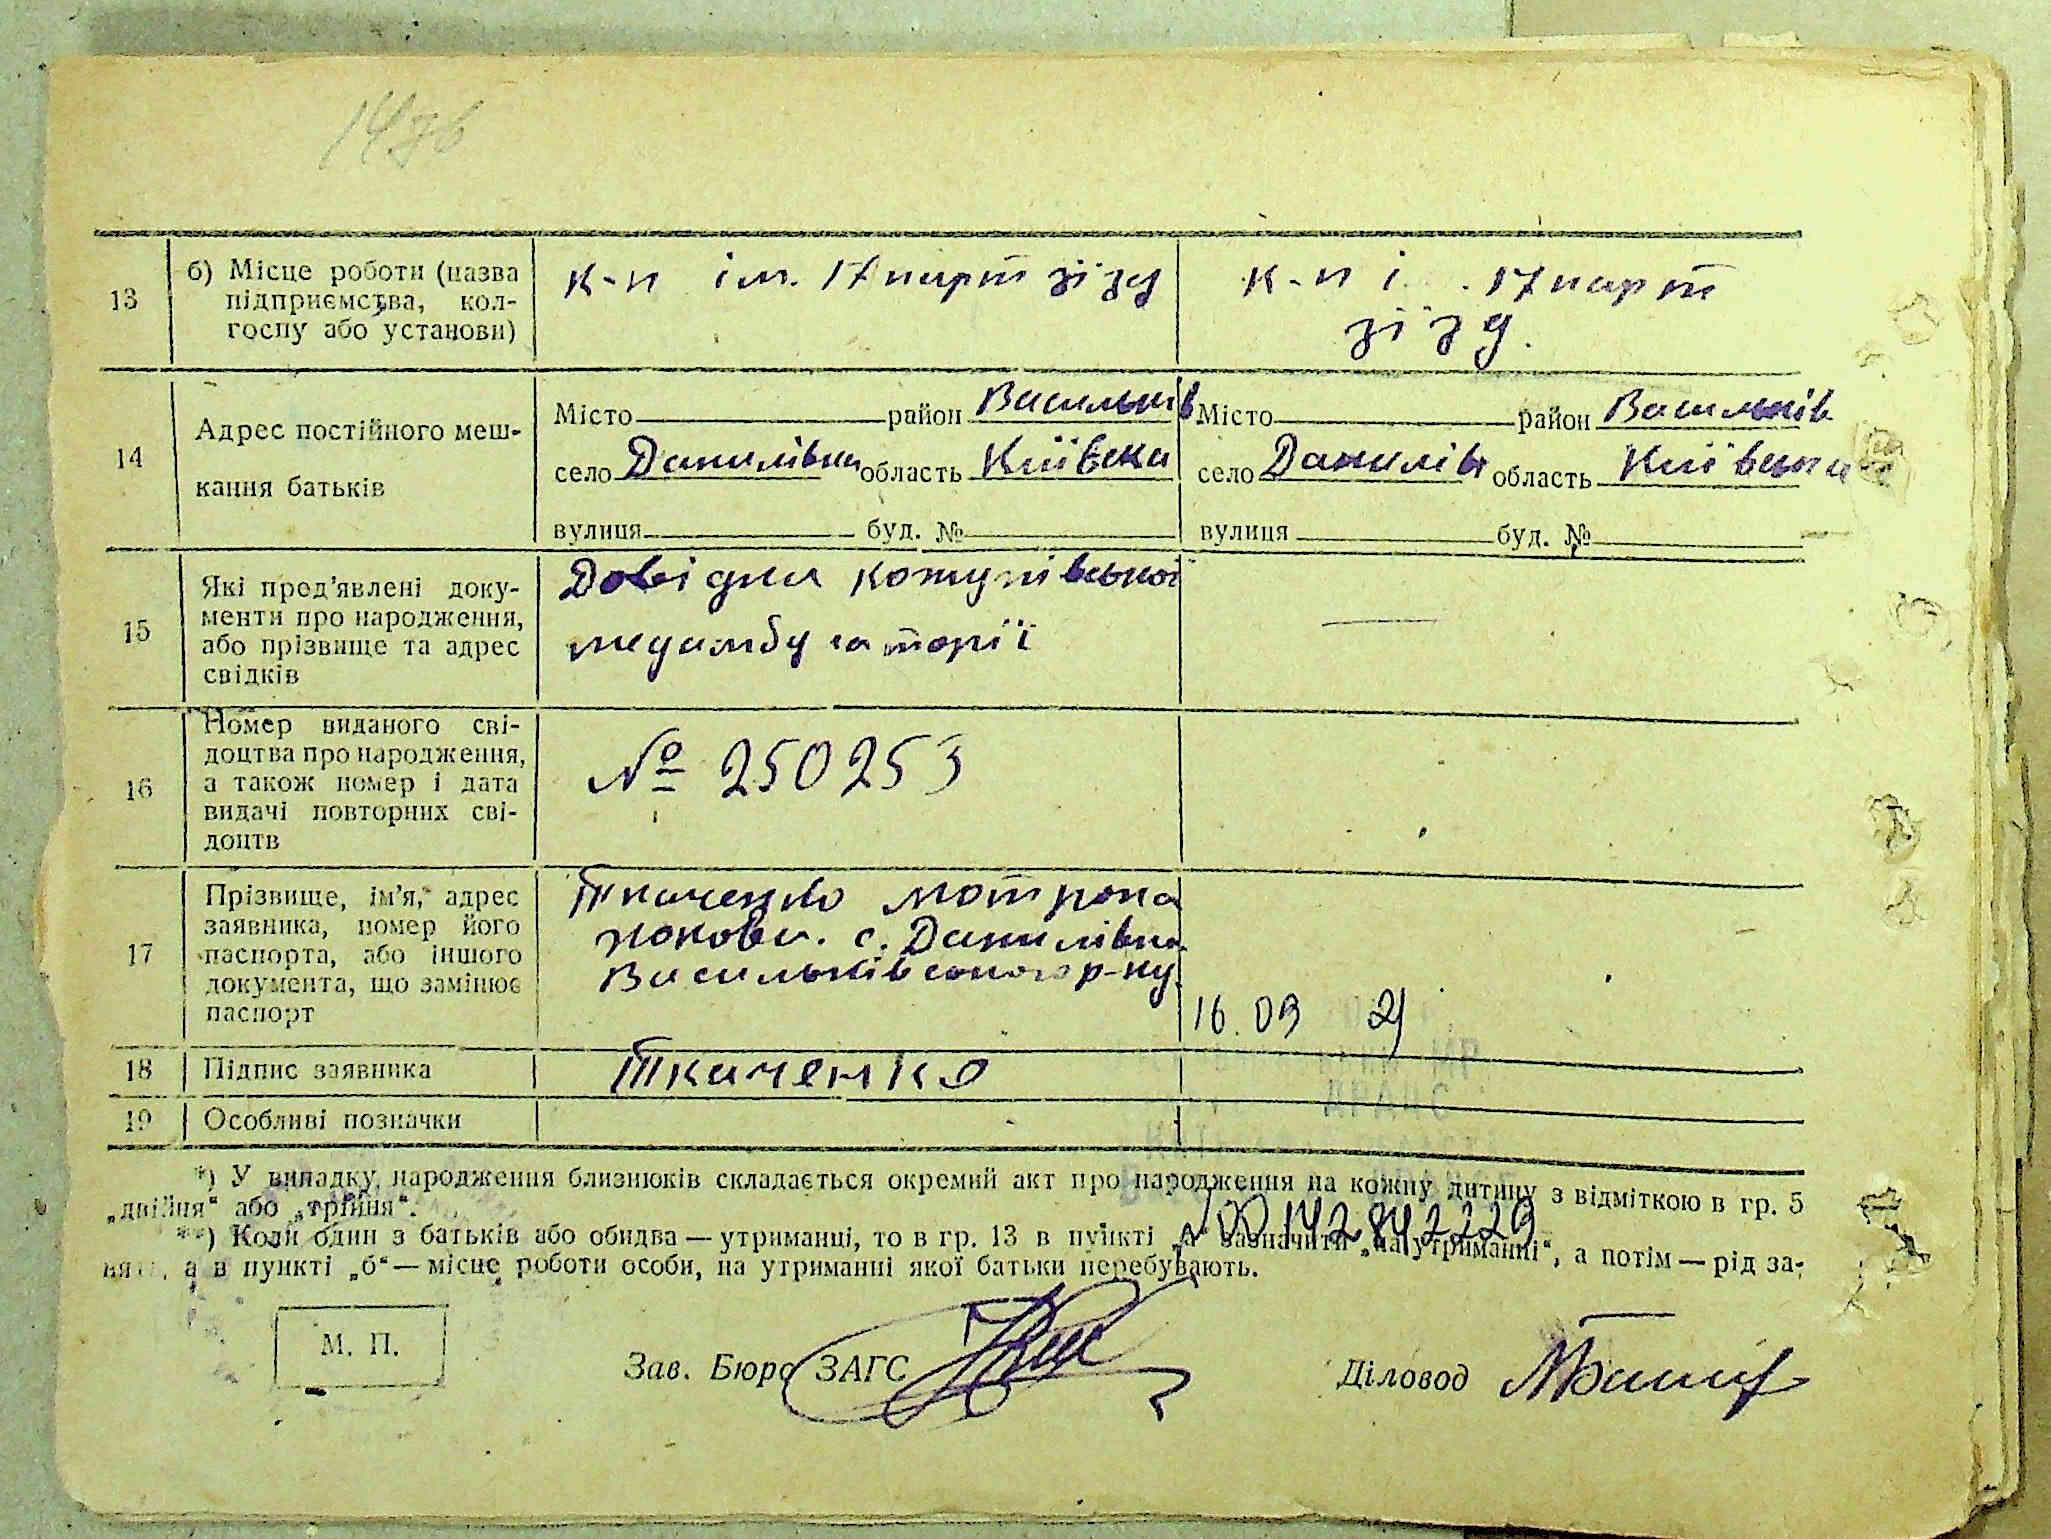 13
б) Місце роботи (назва
підприємства, кол-
госпу або установи)
к-п ім. 17 парт зїзд
к-п і . 17 парт
зїзд.
14
Адрес постійного меш-
кання батьків
Місто район Васильків
село Данилівка область Київська
вулиця буд. №
Місто район Васильків
село Данилів область Київська
вулиця буд. №
15
Які пред'явлені доку-
менти про народження,
або прізвище та адрес
свідків
Довідка кожухівської
медамбулаторії
—
16
Номер виданого сві-
доцтва про народження,
а також номер і дата
видачі повторних сві-
доцтв
№ 250253
17
Прізвище, ім'я, адрес
заявника, номер його
паспорта, або іншого
документа, що замінює
паспорт
Ткаченко Мотрона
с. Данилівка
Васильківського р-ну
16.09 21
18
Підпис заявника
Ткаченко
19
Особливі позначки
*) У випадку народження близнюків складається окремий акт про народження на кожну дитину з відміткою в гр. 5
„двійня“ або „трійня“.
00142842229
**) Коли один з батьків або обидва — утриманці, то в гр. 13 в пункті „а“ зазначити „на утриманні“, а потім — рід за-
няття, а в пункті „б“ — місце роботи особи, на утриманні якої батьки перебувають.
М. П.
Зав. Бюро ЗАГС
Діловод